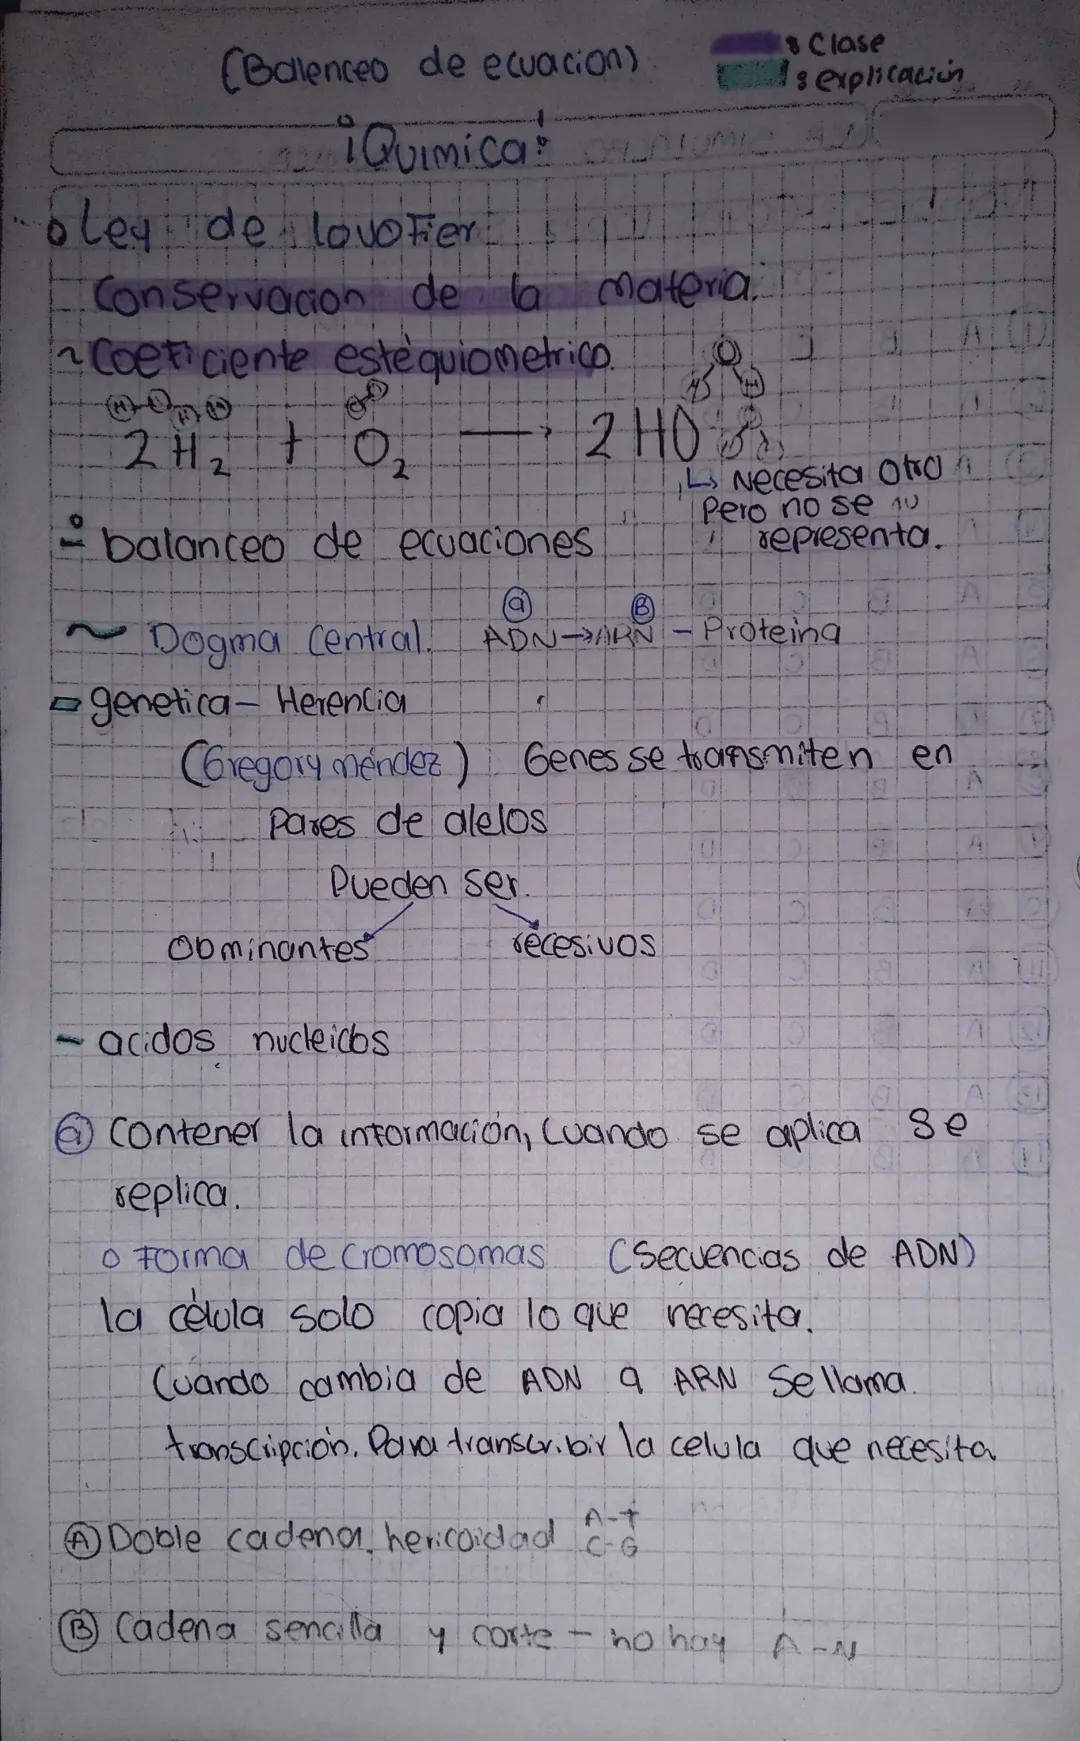 (Balenceo de ecuacion)
: Clase
: explicación
¡Quimica!
o Ley de lavofier
Conservacion de la materia.
~ Coeficiente estequiometrico.
2 H₂ + O₂ → 2 HO
↳ Necesita otro
Pero no se
representa.
÷ balanceo de ecuaciones
~ Dogma Central. ADN → ARN - Proteina
a B
genetica - Herencia
(Gregory méndez) Genes se transmiten en
Pares de alelos
Pueden ser.
Dominantes recesivos
- acidos nucleicos
a Contener la información, Cuando se aplica se
replica.
o Forma de cromosomas (Secuencias de ADN)
la célula solo copia lo que necesita.
Cuando cambia de ADN a ARN Se llama
transcripción. Para transcribir la celula que necesita
A Doble cadena hericoidad A-T
C-G
B Cadena sencilla y corte - no hay A-N